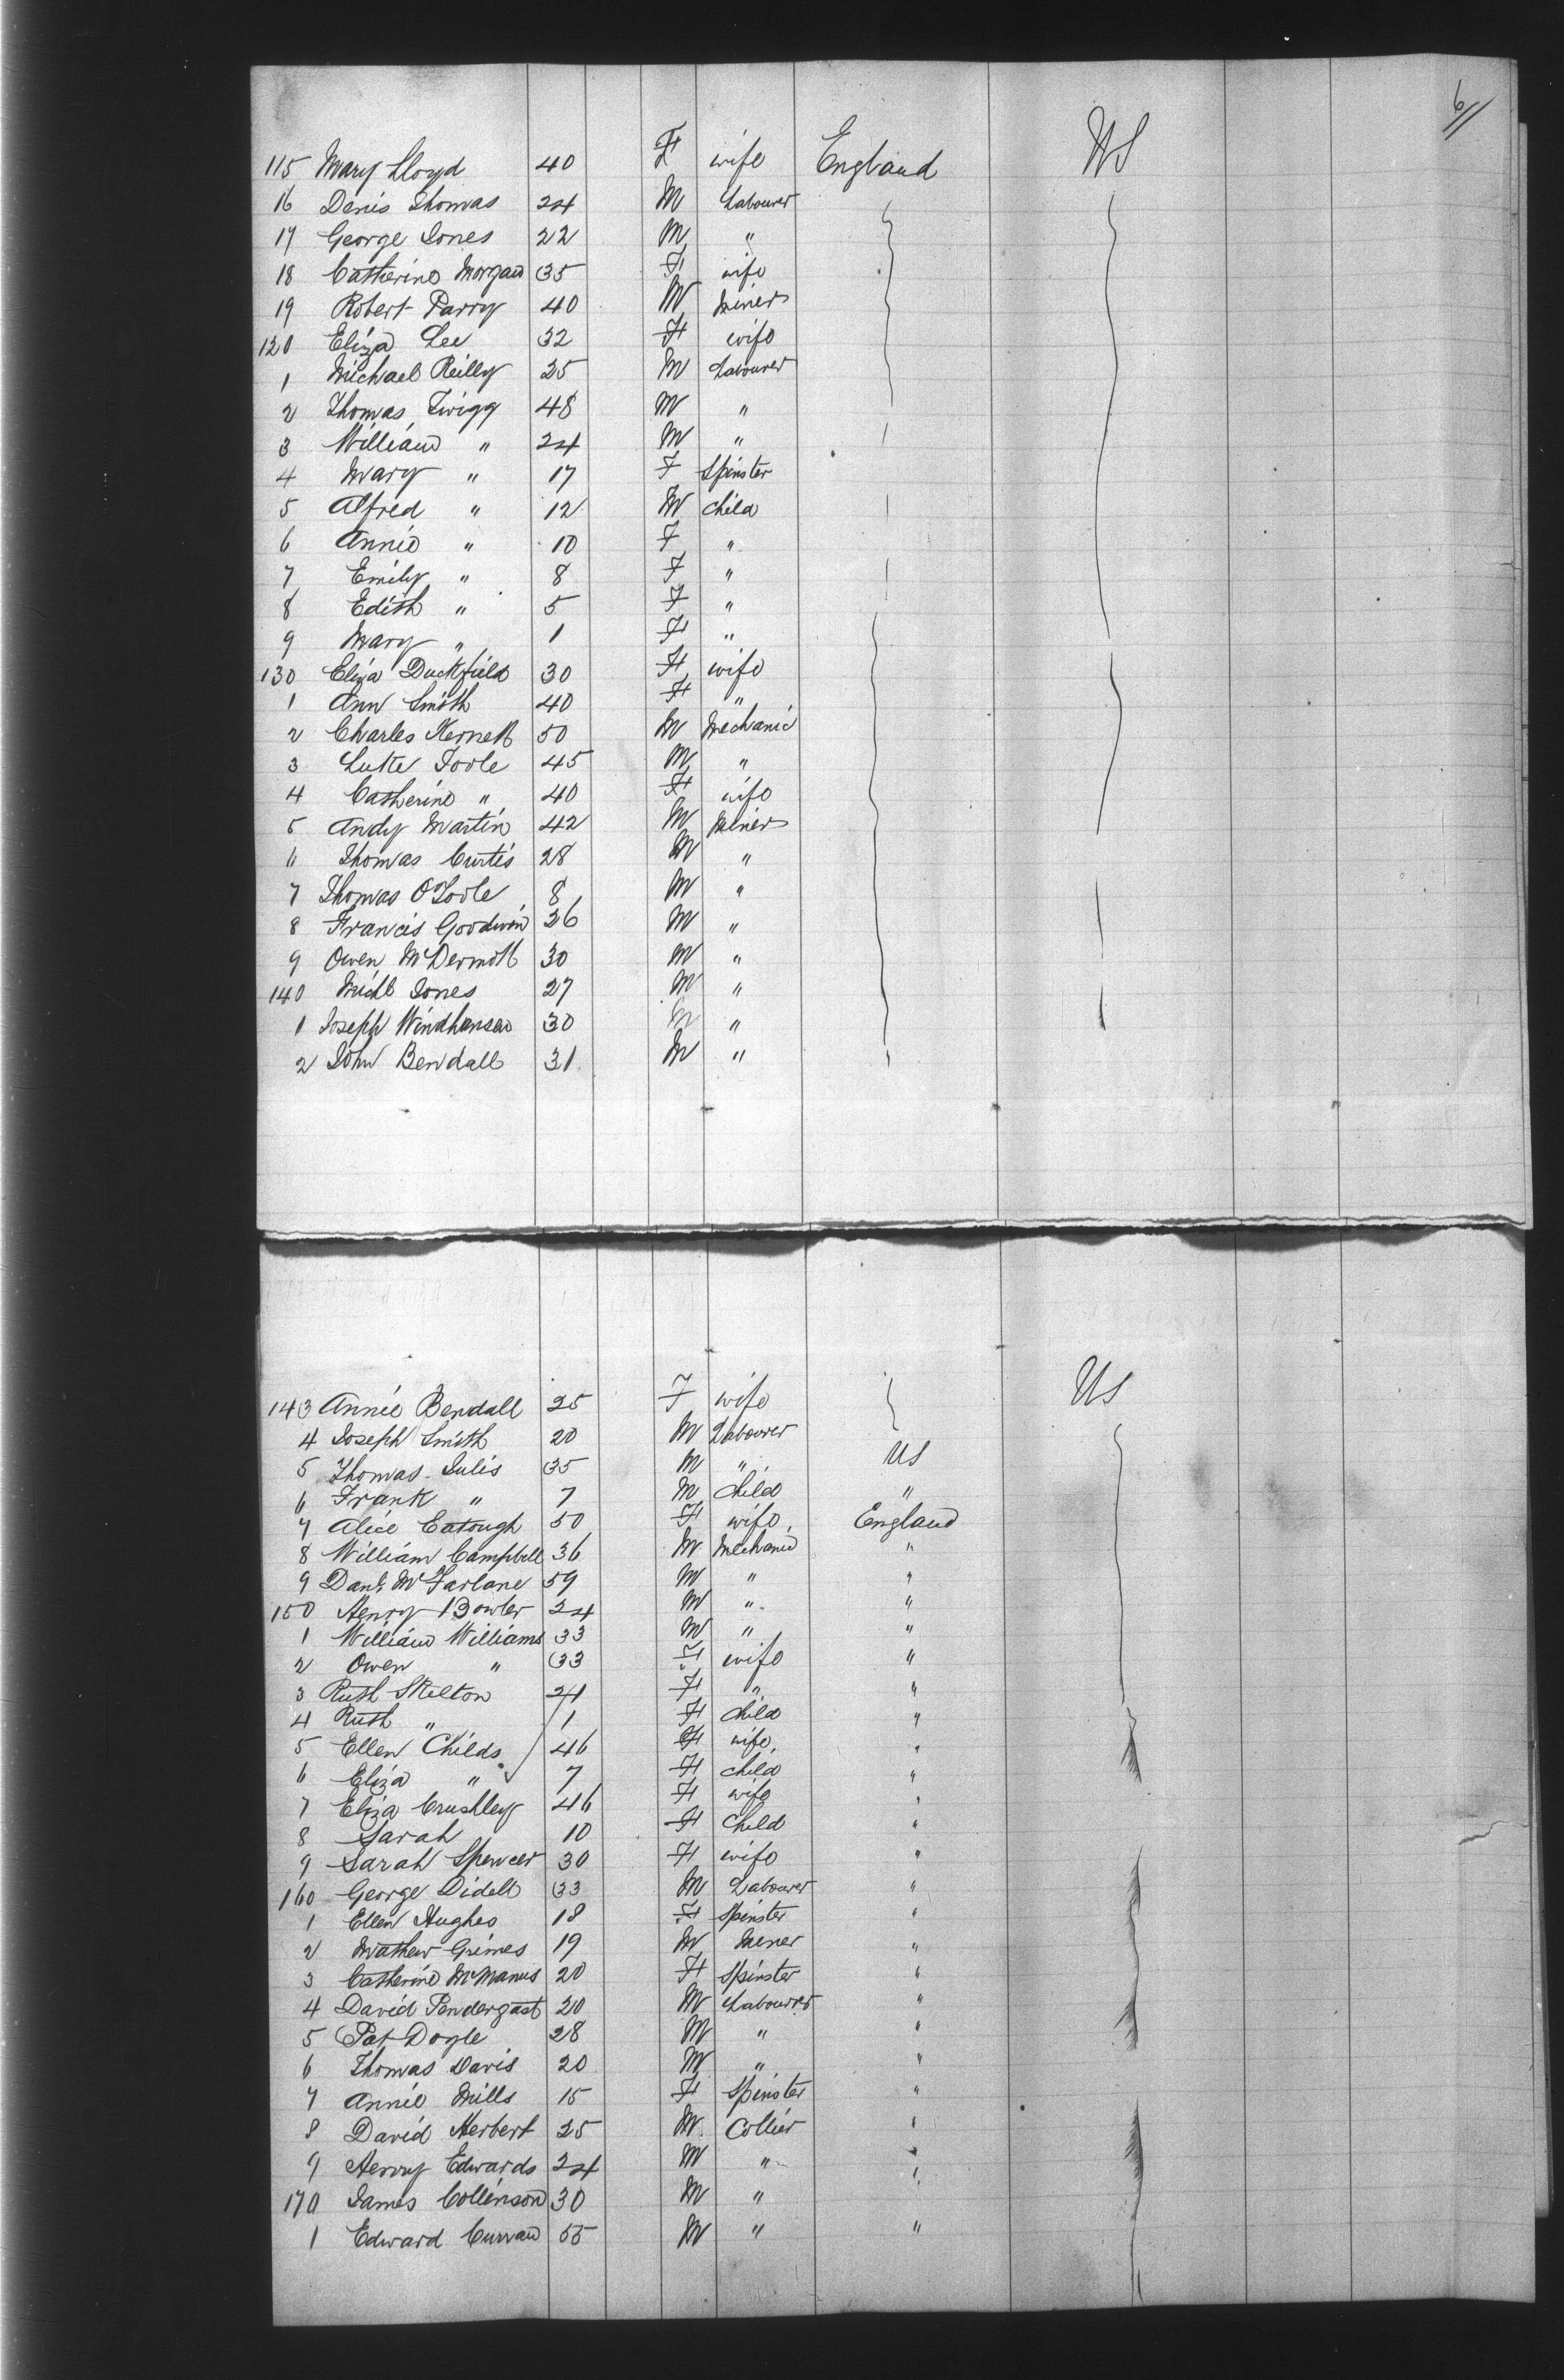 6
115 Mary Lloyd 40 F wife England US
16 Denis Thomas 24 M Labourer
17 George Jones 22 M "
18 Catherine Morgan 35 F wife
19 Robert Parry 40 M Miner
120 Eliza Lee 32 F wife
1 Michael Reilly 25 M Labourer
2 Thomas Twigg 48 M "
3 William " 24 M "
4 Mary " 17 F Spinster
5 Alfred " 12 M Child
6 Annie " 10 F "
7 Emily " 8 F "
8 Edith " 5 F "
9 Mary " 1 F "
130 Eliza Duckfield 30 F wife
1 Ann Smith 40 F "
2 Charles 50 M Mechanic
3 Luke Toole 45 M "
4 Catherine " 40 F wife
5 Andy Martin 42 M Miner
6 Thomas Curtis 28 M "
7 Thomas O'Toole 8 M "
8 Francis Goodwin 26 M "
9 Owen McDermott 30 M "
140 Michl Jones 27 M "
1 Joseph 30 M "
2 John Bendall 31 M "
143 Annie Bendall 25 F wife US
4 Joseph Smith 20 M Labourer
5 Thomas 35 M " US
6 Frank " 7 M Child "
7 Alice Eatough 50 F wife England
8 William Campbell 36 M Mechanic "
9 Danl McFarlane 59 M " "
150 Henry Bowler 24 M " "
1 William Williams 33 M " "
2 Owen " 33 F wife "
3 Ruth Skelton 24 F " "
4 Ruth " 1 F Child "
5 Ellen Childs 46 F wife "
6 Eliza " 7 F Child "
7 Eliza Crushley 46 F wife "
8 Sarah 10 F Child "
9 Sarah Spencer 30 F wife "
160 George 33 M Labourer "
1 Ellen Hughes 18 F Spinster "
2 Mathew Grimes 19 M Miner "
3 Catherine McManus 20 F Spinster "
4 David Pendergast 20 M Labourer "
5 Pat Doyle 28 M " "
6 Thomas Davis 20 M " "
7 Annie Mills 15 F Spinster "
8 David Herbert 25 M Collier "
9 Henry Edwards 24 M " "
170 James Collinson 30 M " "
1 Edward Curran 55 M " "